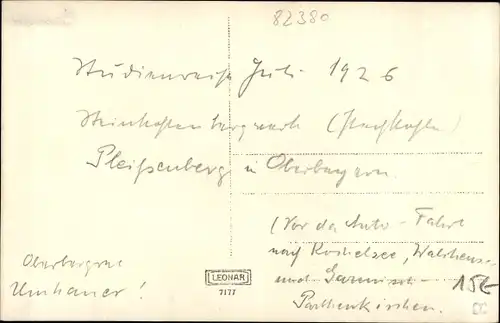 82380
Studienreise Juli 1926
Steinkohlenbergwerk (Pechkohle)
Pleißenberg in Oberbayern.
(Vor der Auto-Fahrt
nach Kochelsee, Walchensee
und Garmisch-
Partenkirchen.
Oberbergrat
Umhauer!
LEONAR
7177
15€